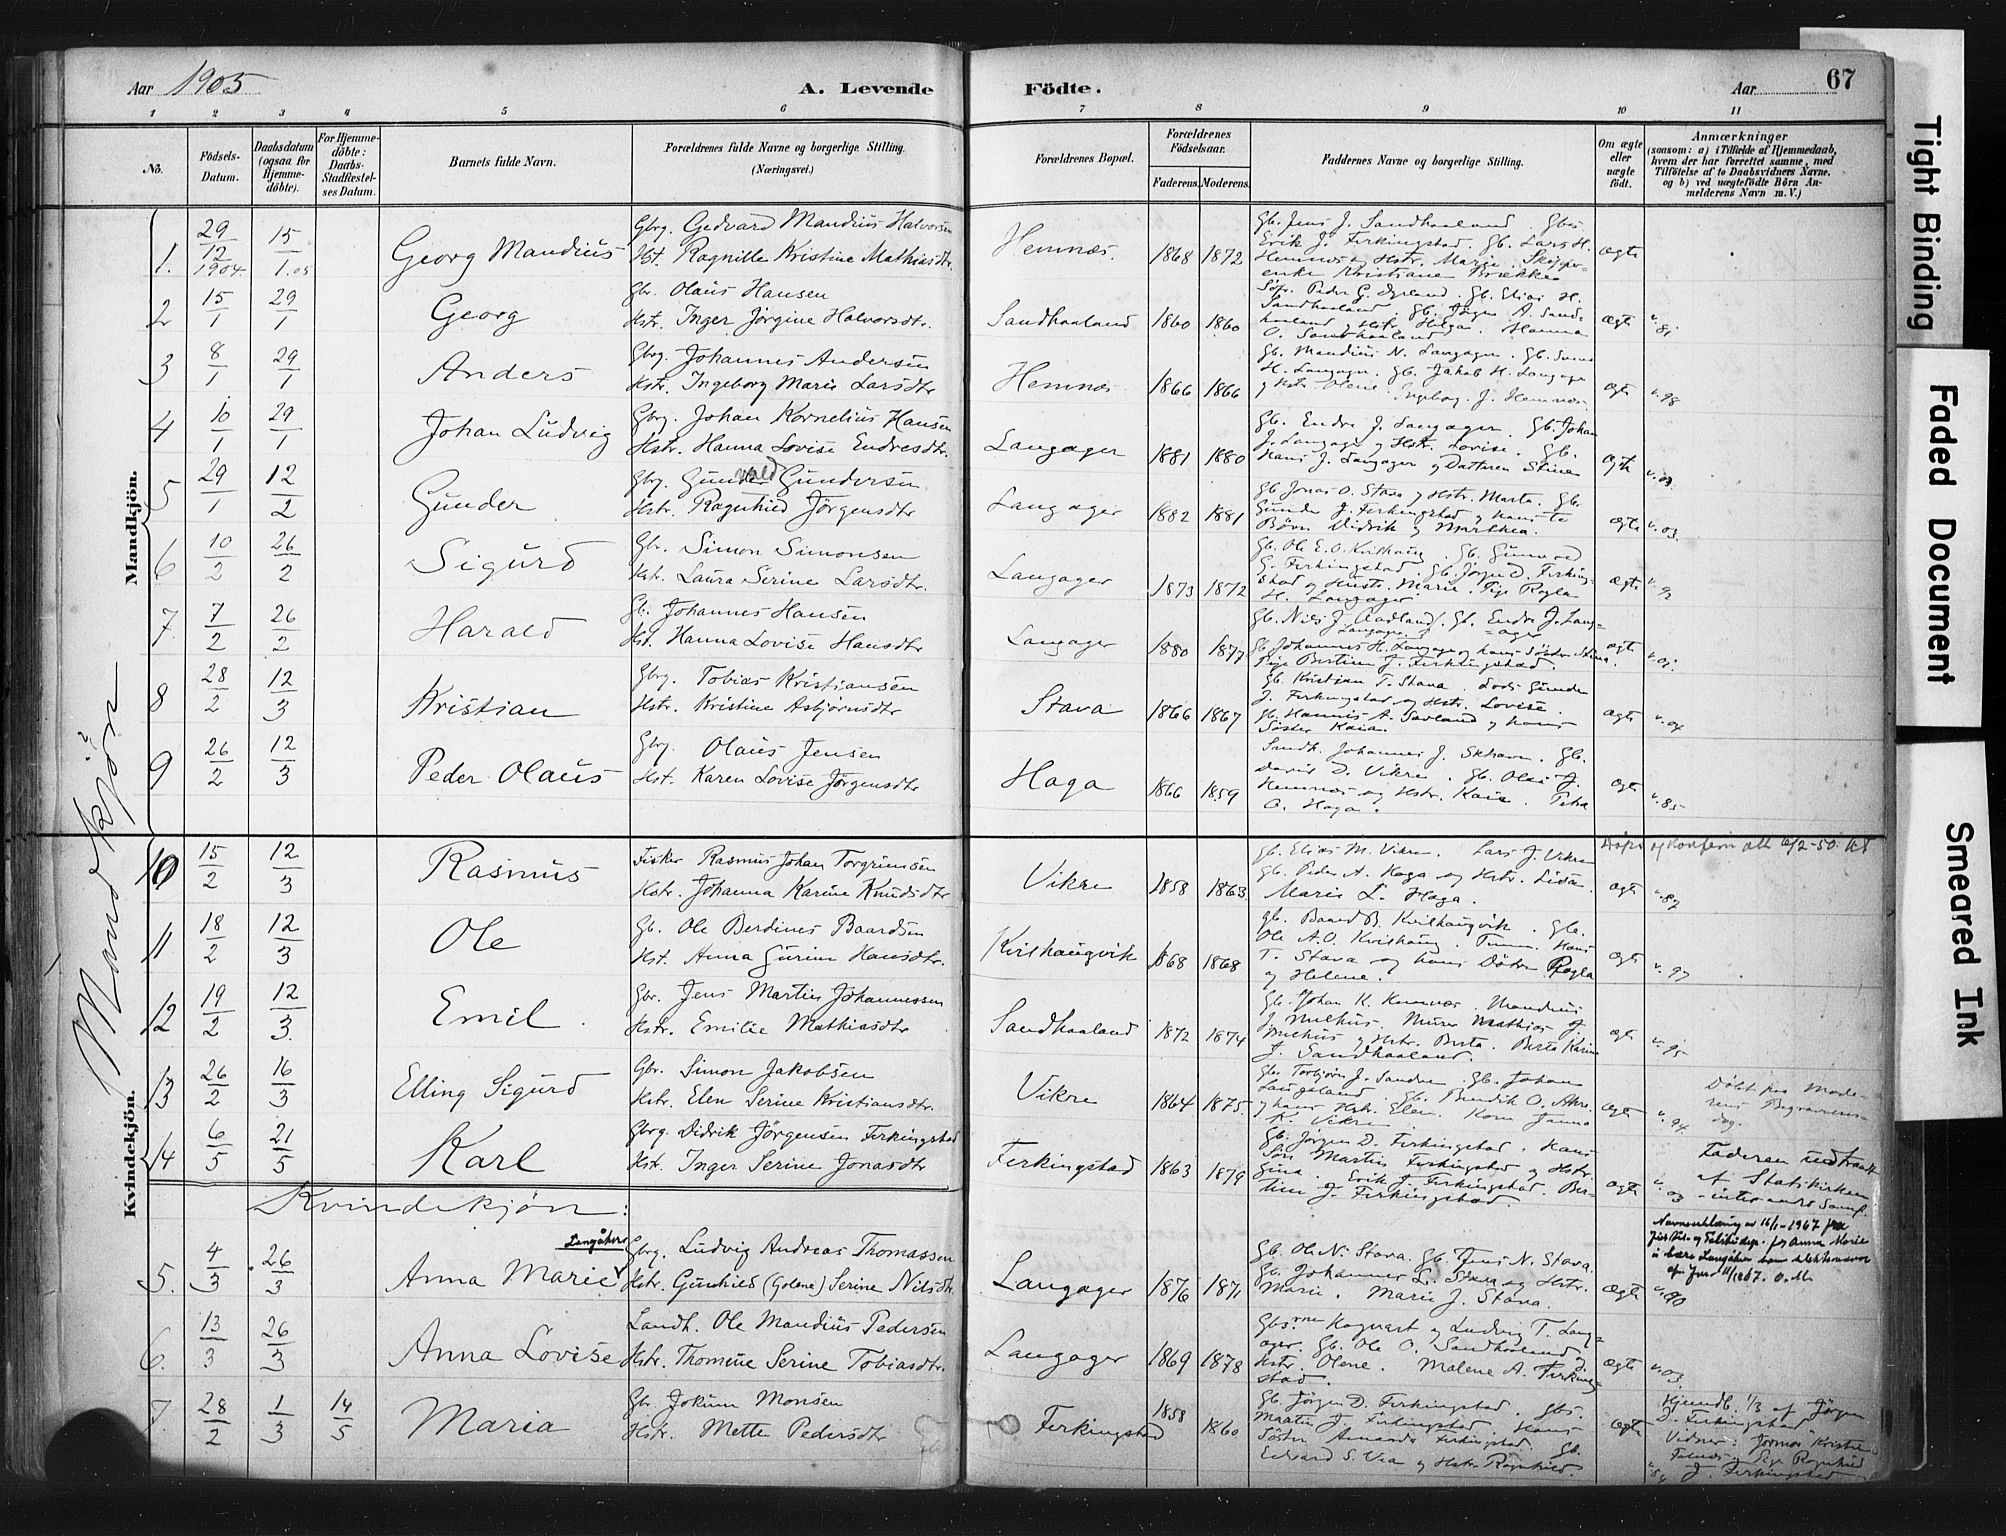 Aar 1905 A. Levende Födte. Aar 67
1 2 3 4 5 6 7 8 9 10 11
No. Födsels-Datum. Daabsdatum (ogsaa for Hjemmedöbte). For Hjemmedöbte: Daabs-Stadfæstelses Datum. Barnets fulde Navn. Forældrenes fulde Navne og borgerlige Stilling. (Næringsvei.) Forældrenes Bopæl. Forældrenes Födselsaar. Faderens. Moderens. Faddernes Navne og borgerlige Stilling. Om ægte eller uægte födt. Anmærkninger (saasom: a) i Tilfælde af Hjemmedaab, hvem der har forrettet samme, med Tilföielse af to Daabsvidners Navne, og b) ved uægtefödte Börn Anmelderens Navn m. V.)
Mandkjön.
1. 29/12 1904. 15/1.05 Georg Mandius Gbrg. Gedvard Mandius Halvorsen
Hst. Ragnille Kristine Mathiasdtr. Hemnæs. 1868 1872 Gb. Jens J. Sandhaaland Gbs
Erik J. Ferkingstad. Gb. Lars H.
Hemnæs og Hstr. Marie. Skipper-
enke Kristiane Brekke ægte
2 15/1 29/1 Georg Gbr. Olaus Hansen
Hstr. Inger Jörgine Halvorsdtr. Sandhaaland 1860 1860 ægte v. 81
O. Sandhaaland
3 8/1 29/1 Anders Gbrg. Johannes Andersen
Hstr. Ingeborg Marie Larsdtr Hemnæs 1866 1866 Gb. Mandius N. Langager. Gb.
H. Langager. Gb. Jakob H. Langager
og Hstr. Olene Ingeborg J. Hemnæs ægte v. 98
4 10/1 29/1 Johan Ludvig Gbrg. Johan Kornelius Hansen
Hstr. Hanna Lovise Endresdtr. Langager 1881 1880 Gb. Endre J. Langager. Gb. Johan
J. Langager og Hstr. Lovise. Gb.
Hans J. Langager og Datteren Stine ægte v. 03.
5 29/1 12/2 Gunder Gbrg. Gunvald Gundersen
Hstr. Ragnhild Jörgensdtr Langager 1882 1881 Gb. Jonas O. Stava og Hstr. Marta. Gb.
Gunder J. Ferkingstad og hans to
Börn Didrik og Marthea. ægte v. 03.
6 10/2 26/2 Sigurd Gbr. Simon Simonsen
Hstr. Laura Serine Larsdtr. Langager 1873 1872 Gb. Ole E. O. Kvilhaug. Gb. Gunvald
G. Ferkingstad. Gb. Jörgen D. Ferking-
stad og Hustr. Marie. Pige Ragla
H. Langager. ægte
7. 7/2 26/2 Harald Gb. Johannes Hansen
Hst. Hanna Lovise Hansdtr Langager 1880 1877 Gb. Nils J. Aadland. Gb. Endre J. Lang-
ager
Gb. Johannes H. Langager og hans Söster Stina.
Pige Bertine J. Ferkingstad. ægte
8 28/2 12/3 Kristian Gbrg. Tobias Kristiansen
Hstr. Kristine Asbjörnsdtr Stava 1866 1867 Gb. Kristian T. Stava. Lods Gunder
J. Ferkingstad og Hstr. Lovise.
Gb. Hannes A. Sævland og hans
Söster Kaia. ægte v. 04
9 26/2 12/3 Peder Olaus Gbrg. Olaus Jensen
Hst. Karen Lovise Jörgensdtr Haga 1866 1859 Sandh. Johannes J. Skhavn. Gb.
David D. Vikre. Gb. Olai J.
Hemnæs og Hstr. Kaia. Petra
O. Haga. ægte v. 85
Mandkjön
10 15/2 12/3 Rasmus Fisker Rasmus Johan Torgrimsen
Hstr. Johanna Karine Knudsdtr Vikre 1858 1863 Gb. Elias M. Vikre. Lars J. Vikre
Gb. Peder A. Haga og Hstr. Lisa.
Marie L. Haga. ægte v. 87
Döps og Konfirm att 16/2-50.
11 18/2 12/3 Ole Gb. Ole Berdines Baardsen
Hst. Anna Gurine Hansdtr. Kvilhaugvik 1868 1868 Gb. Baard B. Kvilhaugvik. Gb.
Ole A. O. Kvilhaug. Tømm. Hans
T. Stava og hans Döttre Ragla
og Helene. ægte v. 97
12 19/2 12/3 Emil Gbr. Jens Martin Johannessen
Hstr. Emilie Mathiasdtr Sandhaaland 1872 1874 Gb. Johan K. Hemnæs. Mandius
J. Milhus. Murer Mathias J.
Milhus og Hstr. Berta. Berta Karine
J. Sandhaaland. ægte v. 95
13 26/2 16/3 Elling Sigurd Gbr. Simon Jakobsen
Hstr. Elen Serine Kristiansdtr. Vikre 1864 1875. Gb. Torbjörn J. Sandve. Gb. Johan
Langaland. Gb. Bendik O. Akre.
og hans Hstr. Elen. Kone Janna
K. Vikre ægte v. 94. Döbt paa Mode-
rens Begravelses-
dag.
Kvindekjön.
14 6/5 21/5 Karl Gbrg. Didrik Jörgensen Ferkingstad
Hstr. Inger Serine Jonasdtr Ferkingstad 1863 1879 Gb. Jörgen D. Ferkingstad. Hans
Sön Martin Ferkingstad og Hstr
Gina. Erik J. Ferkingstad. Ber-
tine J. Ferkingstad. ægte Faderen udtraadt
af Statskirken
Kvindekjön:
5. 4/3 26/3 Anna Marie Langåker Gbrg. Ludvig Andreas Thomassen
Hstr. Gunhild (Golene) Serine Nilsdtr. Langager 1876 1871 Gb. Ole N. Stava. Gb. Jens N. Stava.
Gb. Johannes L. Stava og Hstr.
Marie. Marie J. Stava. ægte v. 90 Navneerklæring av 16/1-1967 fra
for Anna Marie
å bære Langåker som slektsnavn
6. 13/3 26/3 Anna Lovise Landh. Ole Mandius Pedersen
Hstr. Thomine Serine Tobiasdtr. Langager 1869 1878 Kognart og Ludvig T. Lang-
ager. Gb. Ole O. Sandhaaland og
Hstr. Olene. Malene A. Ferking-
stad. ægte v. 03.
7. 28/2 1/3 14/5 Maria Gbr Jokum Monsen
Hstr. Mette Pedersdtr Ferkingstad 1858 1860 Gb. Jörgen D. Ferkingstad. Gbs.
Martin J. Ferkingstad. Hans
Söster Amanda Ferkingstad. Gb.
Edvard S. Vea og Hstr Ragnhild. ægte Hjemdb. 1/3 af Jörgen
D. Ferkingstad
Vidner: Jormor Kristine
Pige Ragnhild
J. Ferkingstad
Tight Binding
Faded Document
Smeared Ink